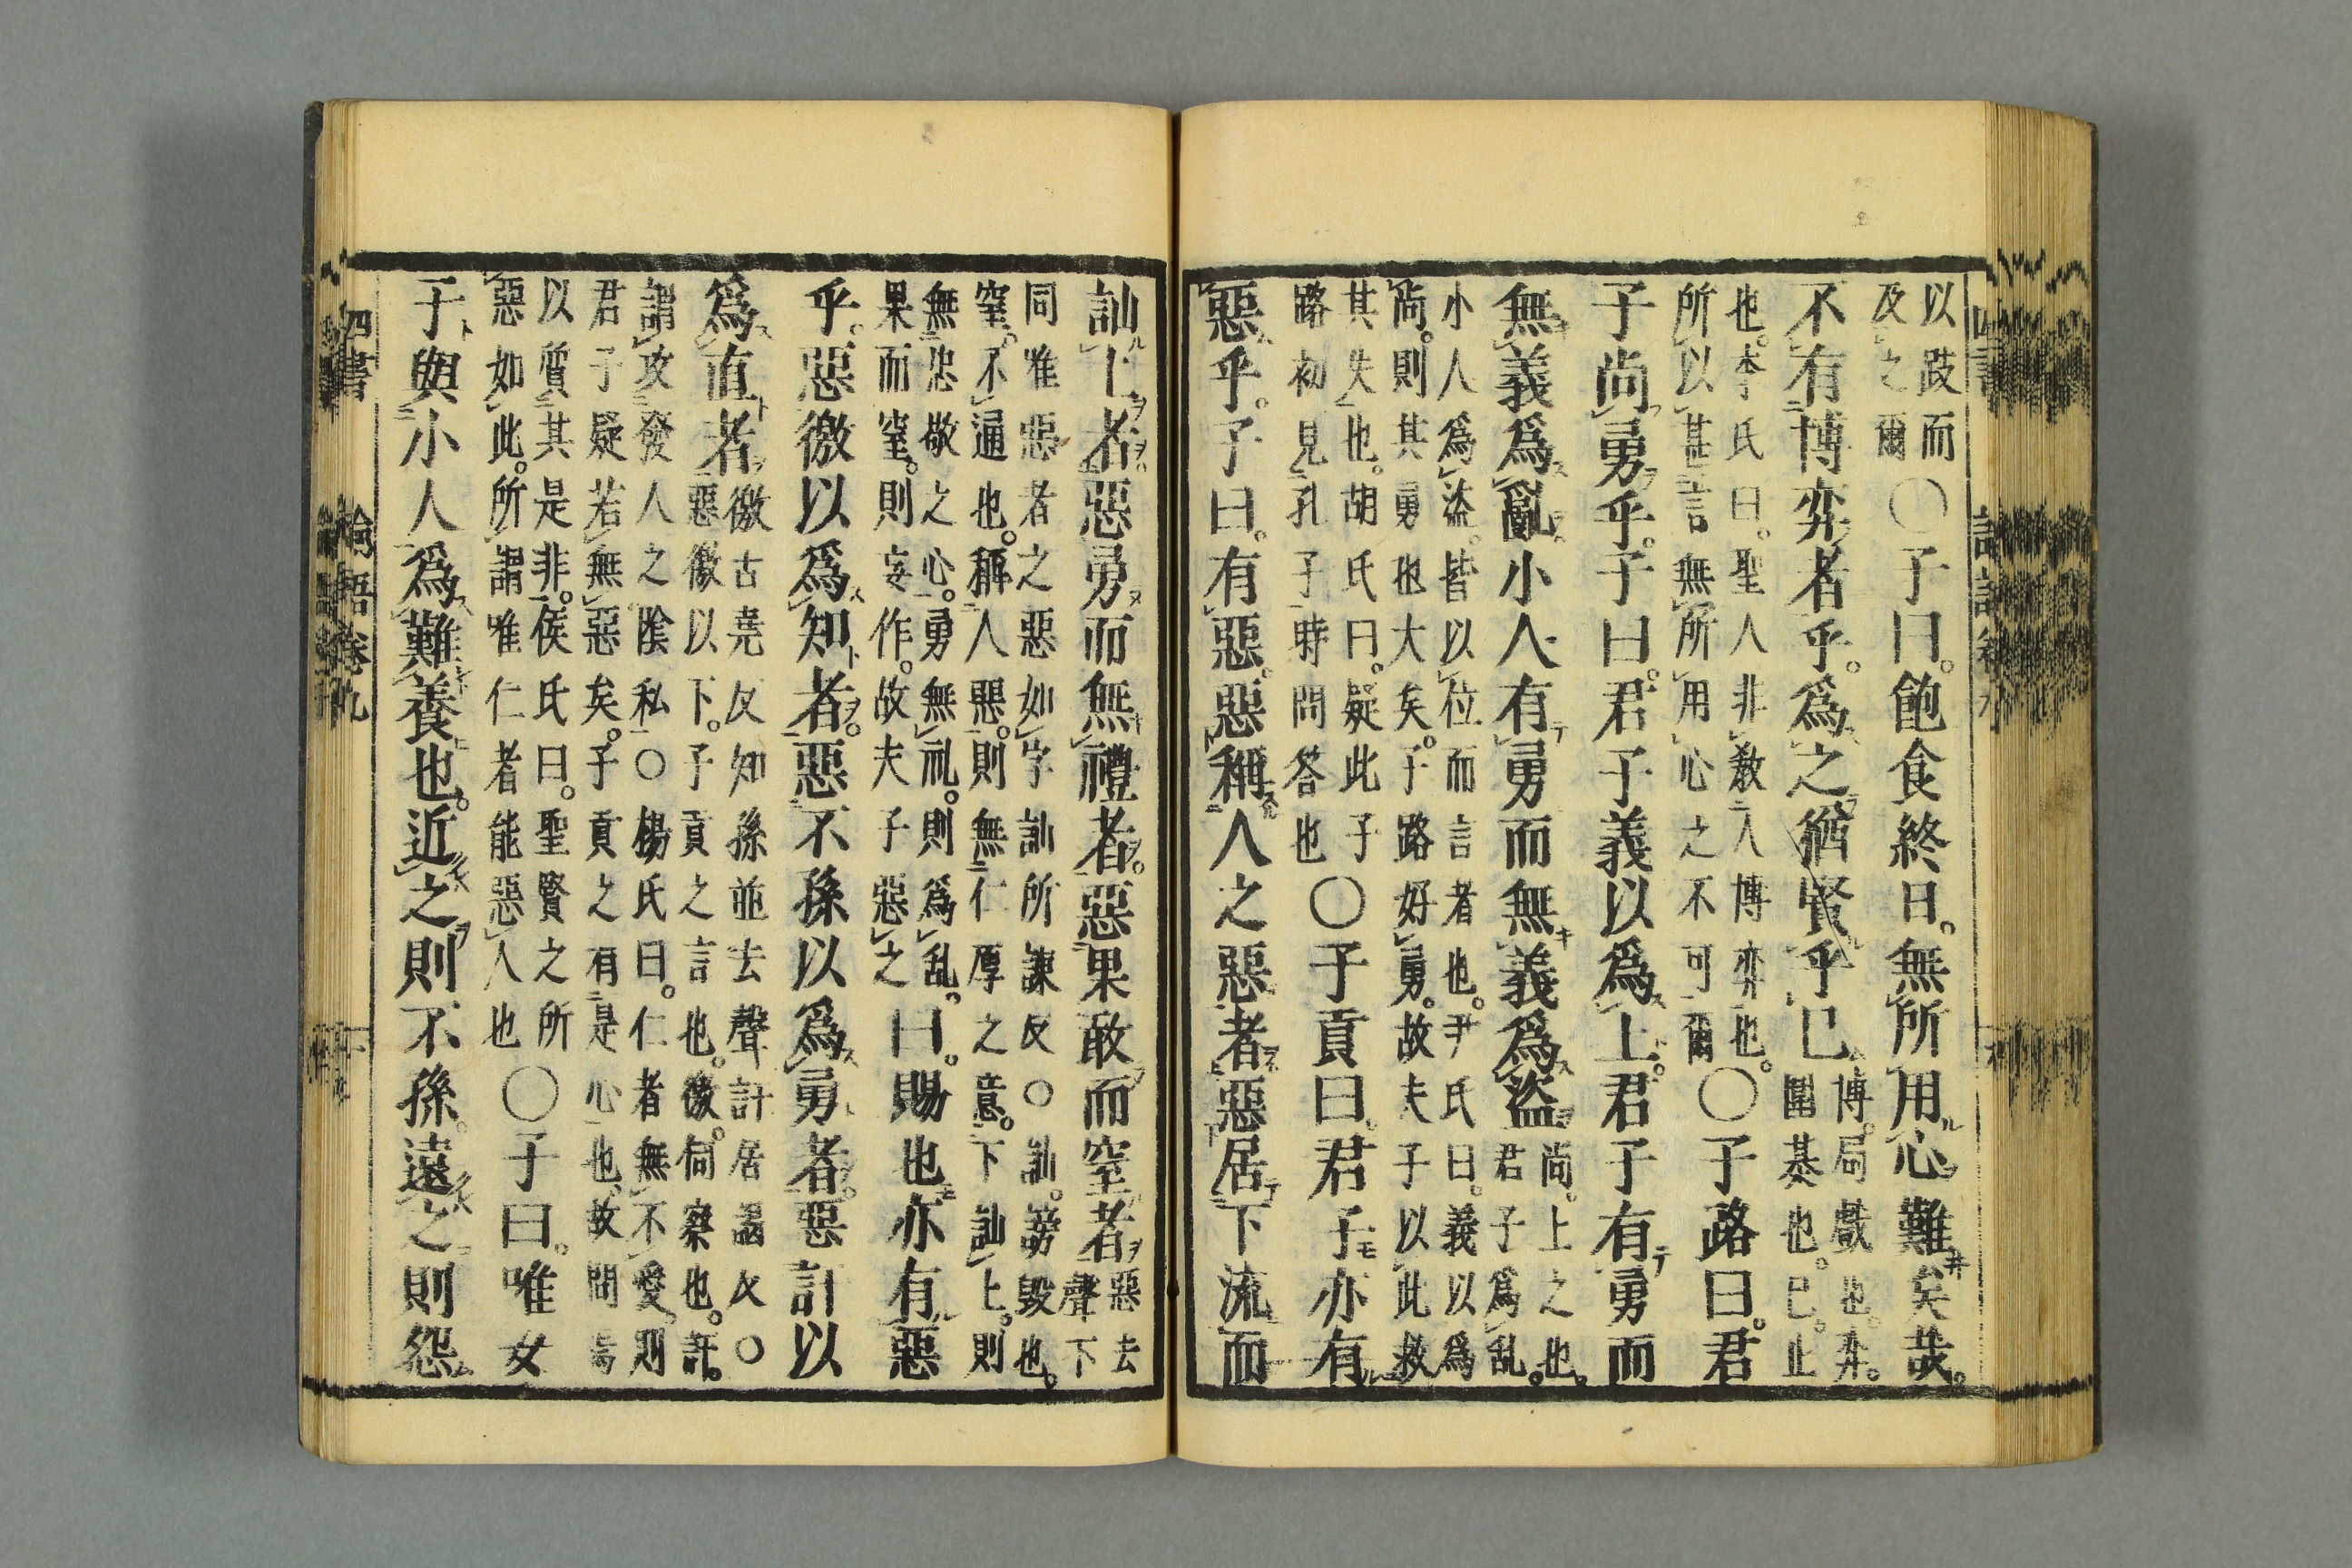 以跂而
及之爾
○子曰。飽食終日。無所用心難矣哉。
不有博弈者乎。爲之猶賢乎已
博。局戲也。弈。
圍棊也。已。止
也。李氏曰。聖人非敎人博弈也。
所以甚言無所用心之不可爾
○子路曰。君
子尚勇乎。子曰。君子義以爲上。君子有勇而
無義爲亂。小人有勇而無義爲盜
尚。上之也。
君子爲乱。
小人爲盜。皆以位而言者也。尹氏曰。義以爲
尚。則其勇也大矣。子路好勇。故夫子以此救
其失也。胡氏曰。疑此子
路初見孔子時問答也
○子貢曰。君子亦有
惡乎。子曰。有惡。惡稱人之惡者惡居下流而
訕上者惡勇而無禮者。惡果敢而窒者
惡去
聲下
同唯惡者之惡如字訕所諫反○訕。謗毀也。
窒。不通也。稱人惡。則無仁厚之意。下訕上。則
無忠敬之心。勇無礼。則爲乱。
果而窒。則妄作。故夫子惡之
曰。賜也亦有惡
乎。惡徼以爲知者。惡不孫以爲勇者。惡訐以
爲直者
徼古堯反知孫並去聲訐居謁反○
惡徼以下。子貢之言也。徼。伺察也。訐。
謂攻發人之陰私○楊氏曰。仁者無不愛。則
君子疑若無惡矣。子貢之有是心也。故問焉
以質其是非。侯氏曰。聖賢之所
惡如此。所謂唯仁者能惡人也
○子曰。唯女
子與小人爲難養也。近之則不孫。遠之則怨
四書 論語卷九